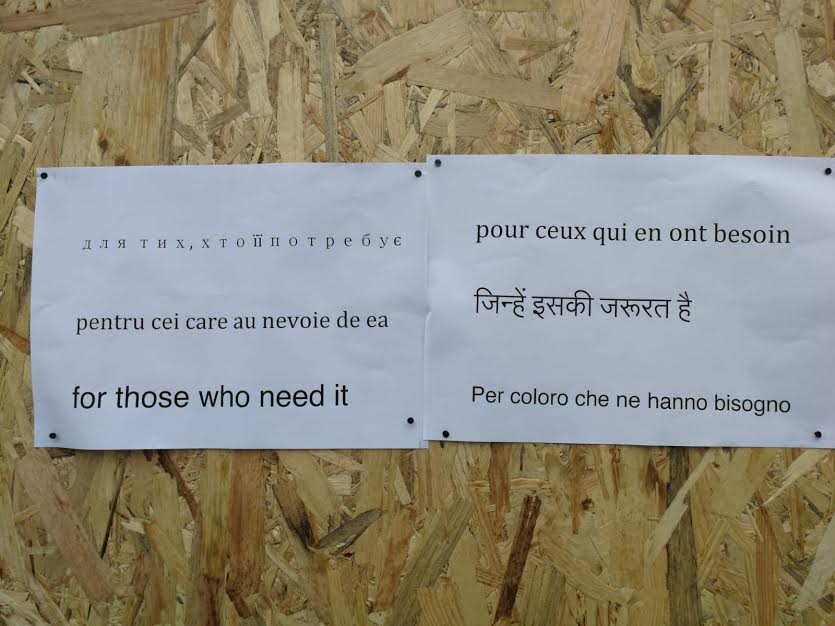 для тих, хто її потребує
pentru cei care au nevoie de ea
for those who need it
pour ceux qui en ont besoin
जिन्हें इसकी जरूरत है
Per coloro che ne hanno bisogno